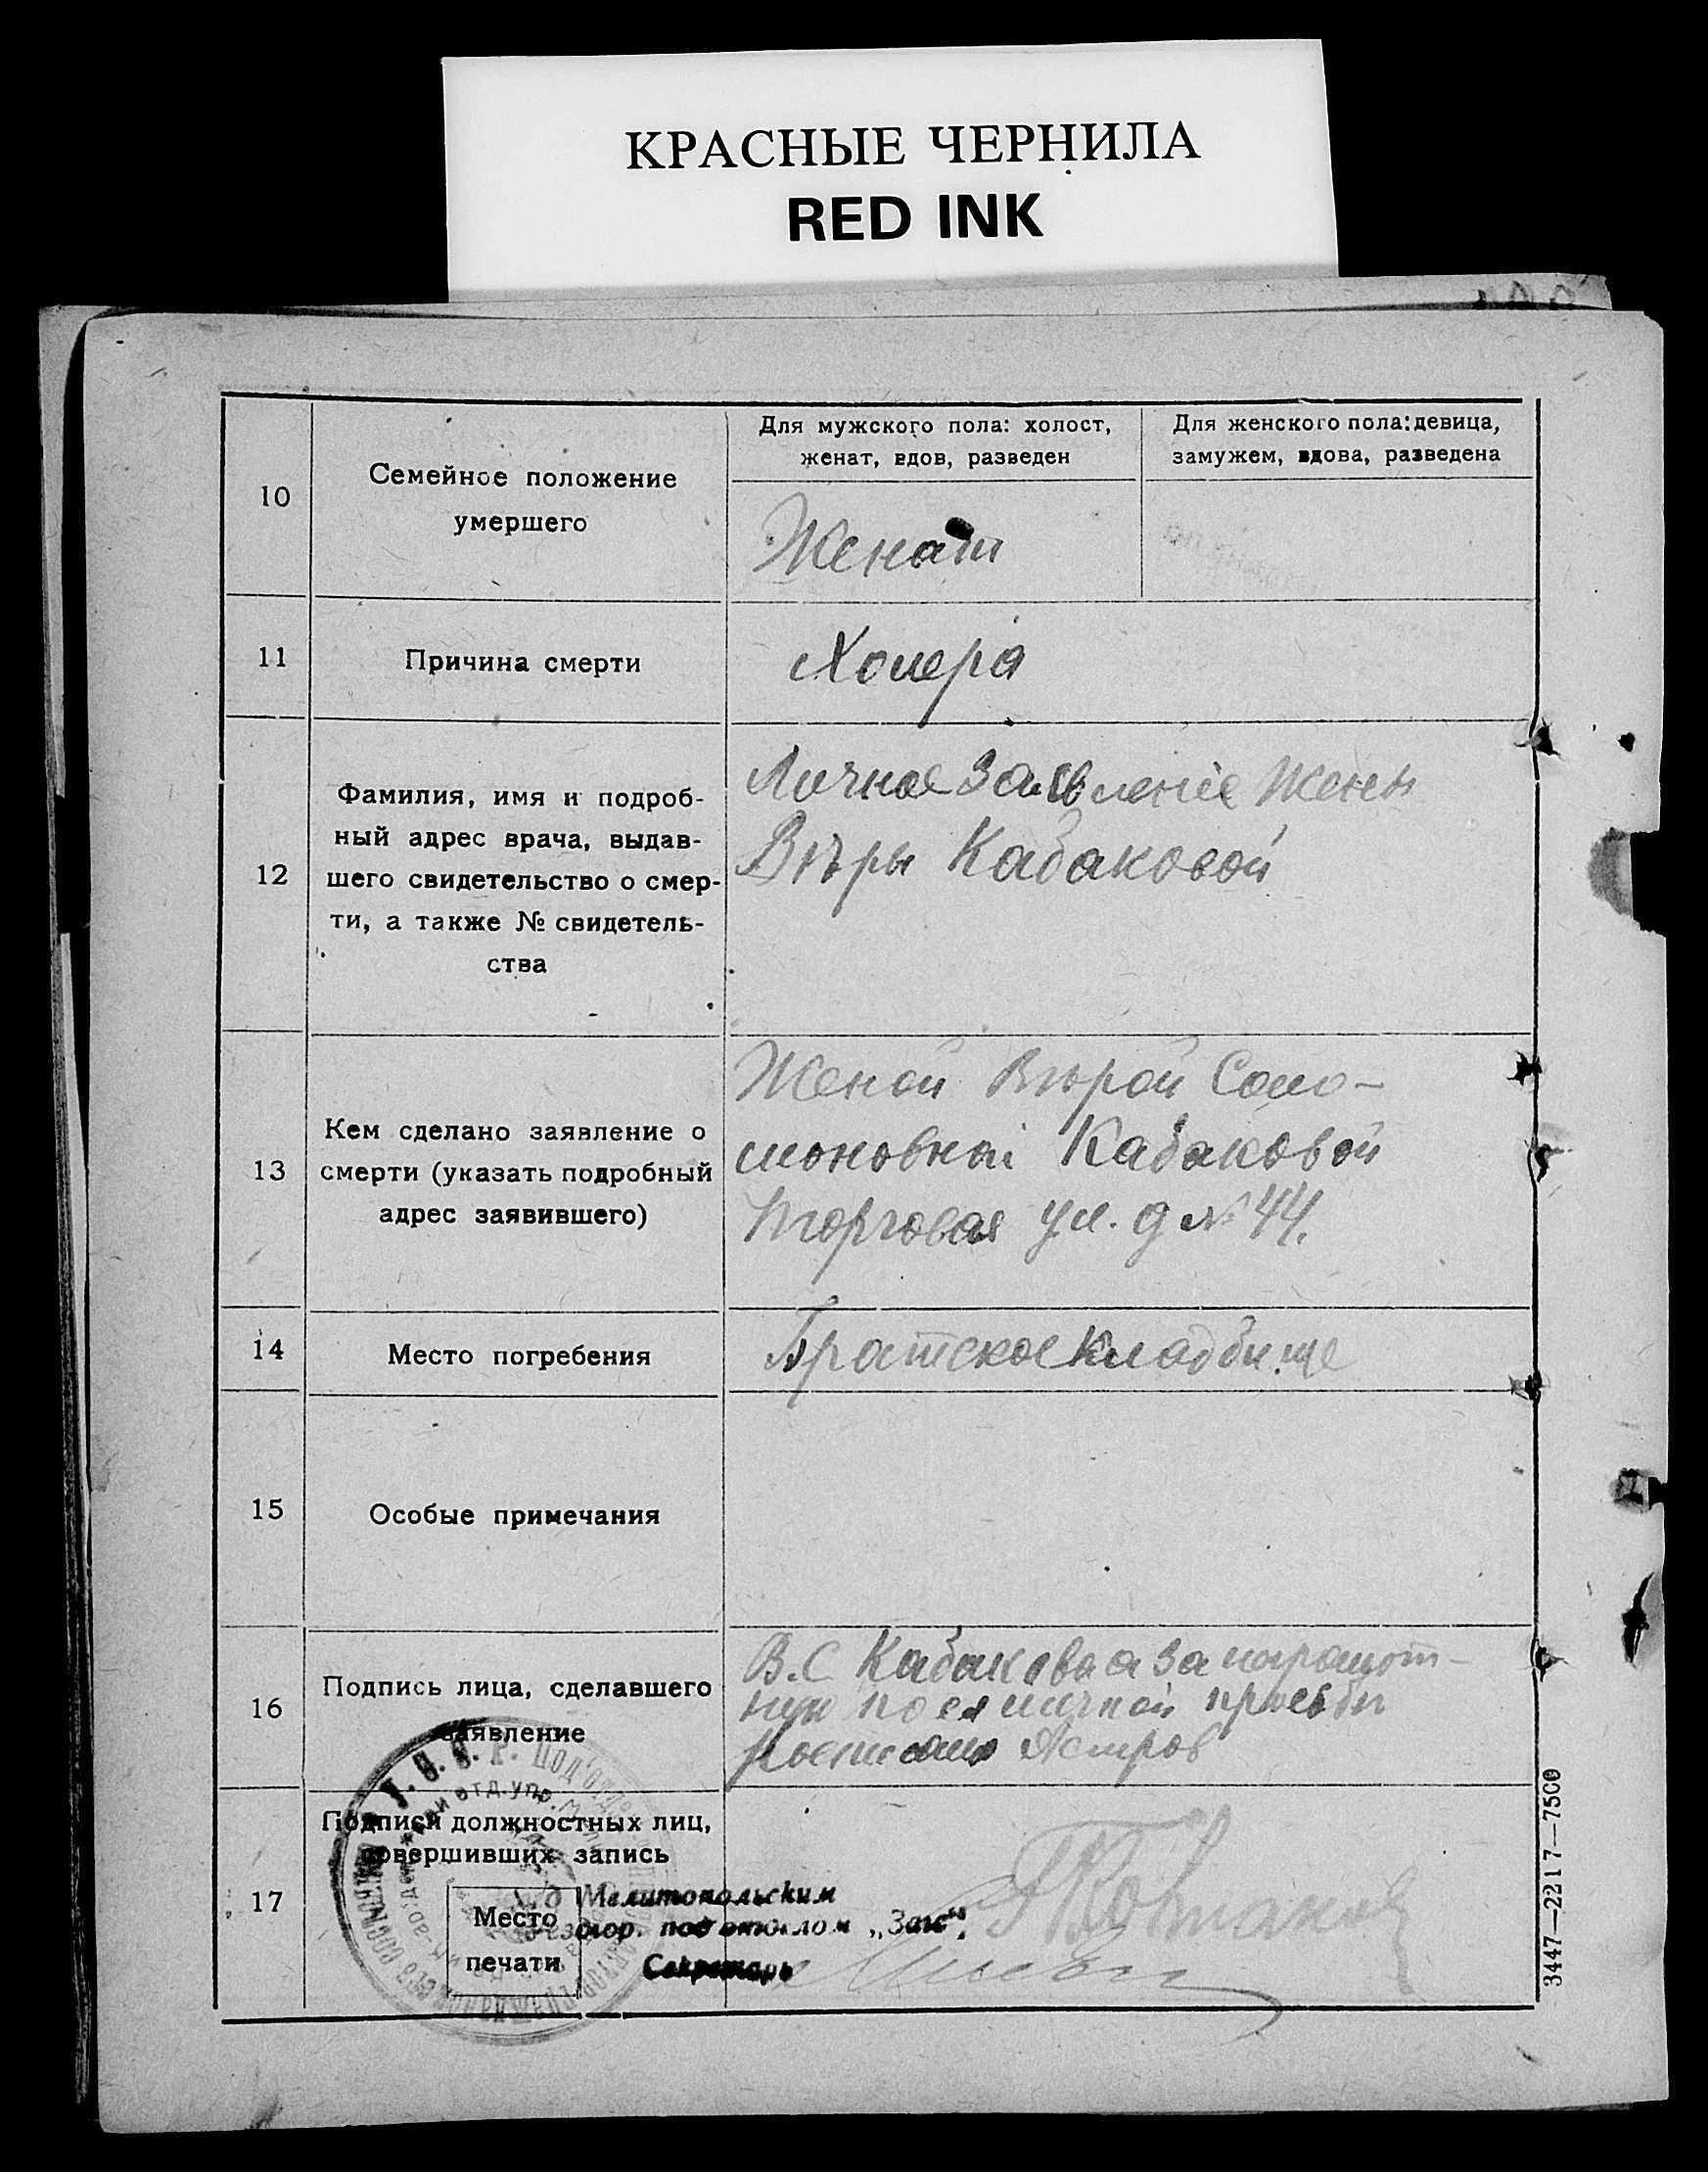 КРАСНЫЕ ЧЕРНИЛА
RED INK
10
Семейное положение
умершего
Для мужского пола: холост,
женат, вдов, разведен
Для женского пола: девица,
замужем, вдова, разведена
Женат
11
Причина смерти
Холера
12
Фамилия, имя и подроб-
ный адрес врача, выдав-
шего свидетельство о смер-
ти, а также № свидетель-
ства
Личное заявление Жены
Вѣры Кабаковой
13
Кем сделано заявление о
смерти (указать подробный
адрес заявившего)
Женой Вѣрой Соло-
моновной Кабаковой
Торговая ул. д № 44.
14
Место погребения
Братское кладбище
15
Особые примечания
16
Подпись лица, сделавшего
заявление
В.С Кабакова а за неграмот-
ную по ея личной просьбы
Астров
17
Подписи должностных лиц,
совершивших запись
Место
печати
Мелитопольским
под'отделом „Загс".
Секретарь
3447—2217—7500